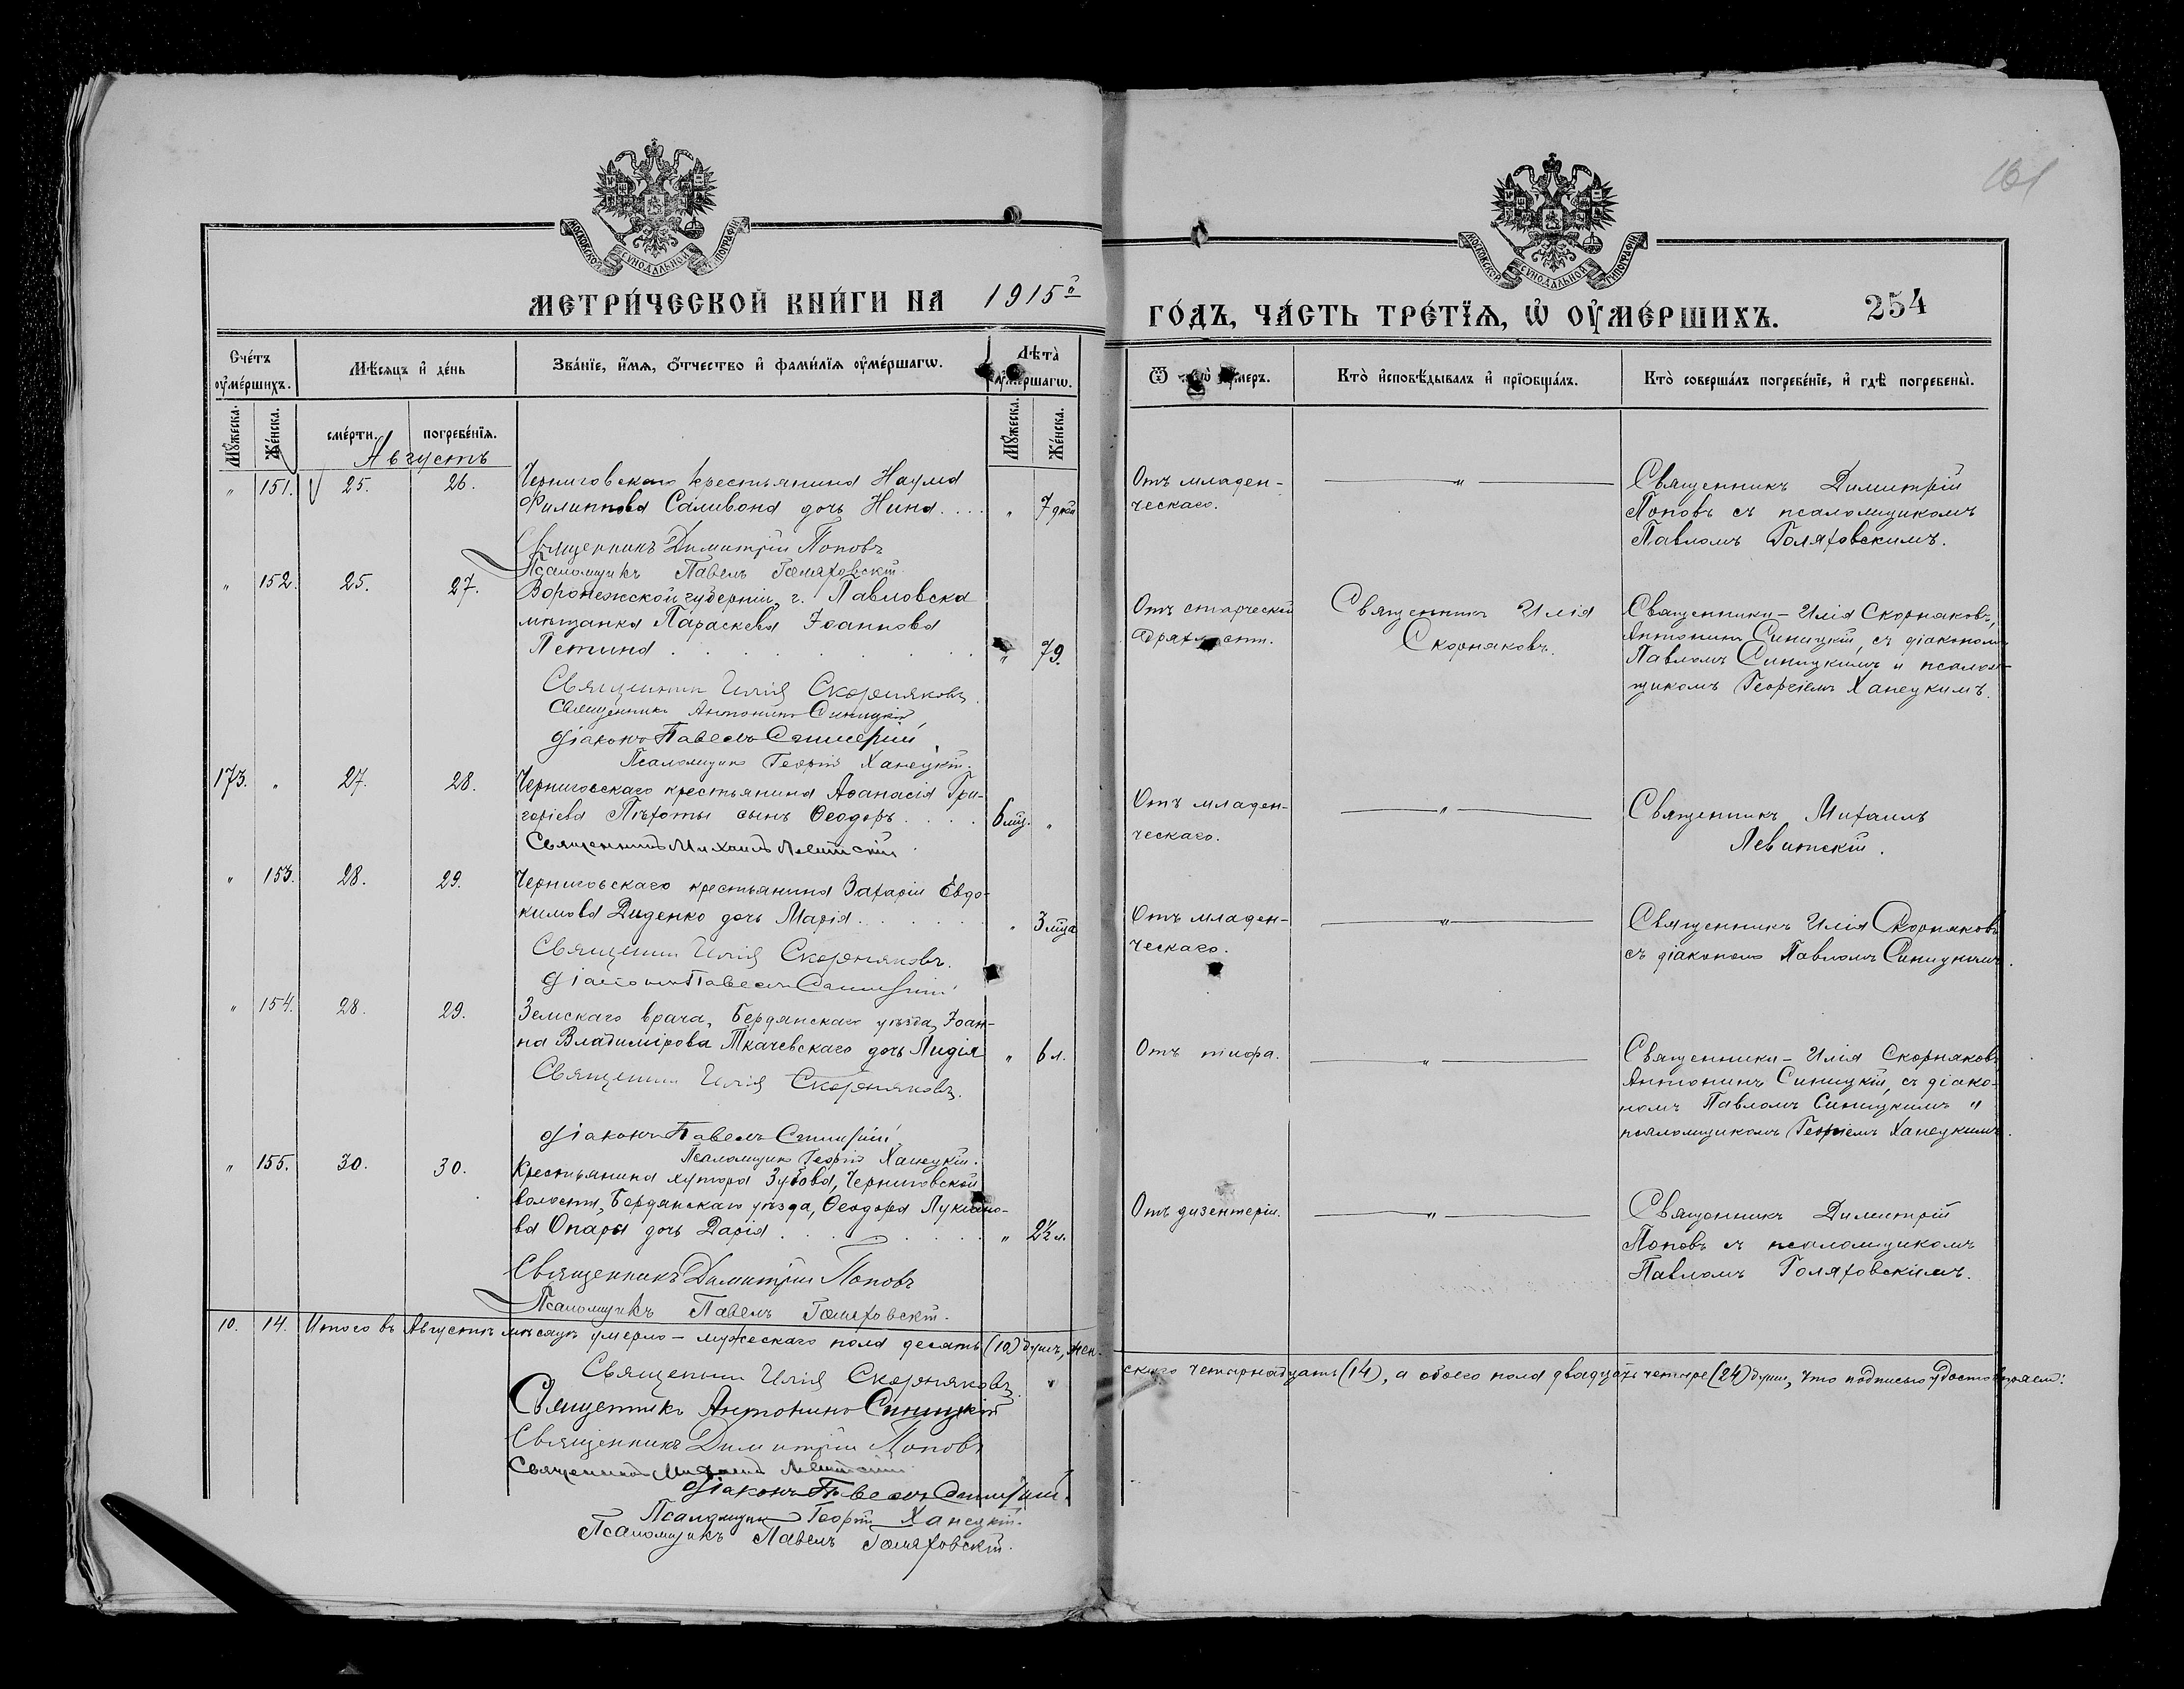 161
МОСКОВСКОЙ СУНОДАЛЬНОЙ ТИПОГРАФІИ
МОСКОВСКОЙ СУНОДАЛЬНОЙ ТИПОГРАФІИ
МЕТРИ́ЧЕСКОЙ КНИ́ГИ НА 1915й
ГО́ДЪ, ЧА́СТЬ ТРЕ́ТЇѦ, Ѡ҆ ОУ҆МЕ́РШИХЪ. 254
Сче́тъ оу҆ме́ршихъ.
Мѣ́сяцъ и҆ де́нь
Зва́нїе, и҆́мѧ, ѻ҆́тчество и҆ фами́лїѧ оу҆ме́ршагѡ.
Лѣ́та оу҆ме́ршагѡ.
Мꙋ́жеска. Же́нска.
сме́рти. погребе́нїѧ.
Мꙋ́жеска. Же́нска.
Кто̀ и҆сповѣ́дывалъ и҆ прїѡбща́лъ.
Кто̀ соверша́лъ погребе́нїе, и҆ гдѣ̀ погребены̀.
Августъ
" 151. 25. 26. Черниговскаго крестьянина Наума
Филиппова Саливона дочь Нина.... " 7 дней
Священникъ Димитрій Поповъ
Псаломщикъ Павелъ Голяховскій.
Отъ младен-
ческаго.
"
Священникъ Димитрій
Поповъ съ псаломщикомъ
Павломъ Голяховскимъ.
" 152. 25. 27. Воронежской губерніи, г. Павловска
мѣщанка Параскева Іоаннова
Петина . . . . . . . " 79.
Священникъ Илія Скорняковъ.
Священникъ Антонинъ Синицкій,
Діаконъ Павелъ Синицкій,
Псаломщикъ Георгій Ханецкій.
Отъ старческой
дряхлости.
Священникъ Илія
Скорняковъ.
Священники - Илія Скорняковъ,
Антонинъ Синицкій, съ діакономъ
Павломъ Синицкимъ и псалом-
щикомъ Георгіемъ Ханецкимъ.
173. " 27. 28. Черниговскаго крестьянина Аѳанасія Гри-
горіева Пѣхоты сынъ Ѳеодоръ . . . . 6 мц. "
Священникъ Михаилъ Левитскій.
Отъ младен-
ческаго.
"
Священникъ Михаилъ
Левитскій.
" 153. 28. 29. Черниговскаго крестьянина Захаріи Евдо-
кимова Диденко дочь Марія . . . . . " 3 мца
Священникъ Илія Скорняковъ.
Діаконъ Павелъ Синицкій.
Отъ младен-
ческаго.
"
Священникъ Илія Скорняковъ
съ діакономъ Павломъ Синицкимъ.
" 154. 28. 29. Земскаго врача, Бердянскаго уѣзда, Іоан-
на Владимірова Ткачевскаго дочь Лидія " 6 л.
Священникъ Илія Скорняковъ.
Діаконъ Павелъ Синицкій,
Псаломщикъ Георгій Ханецкій.
Отъ
"
Священники - Илія Скорняковъ
Антонинъ Синицкій, съ діако-
номъ Павломъ Синицкимъ и
псаломщикомъ Георгіемъ Ханецкимъ.
" 155. 30. 30. Крестьянина хутора Зубова, Черниговской
волости, Бердянскаго уѣзда, Ѳеодора Лукіано-
ва Опары дочь Дарія . . . . . . . " 2½ л.
Священникъ Димитрій Поповъ
Псаломщикъ Павелъ Голяховскій.
Отъ дизентеріи.
"
Священникъ Димитрій
Поповъ съ псаломщикомъ
Павломъ Голяховскимъ.
10. 14. Итого въ Августѣ мѣсяцѣ умерло - мужескаго пола десять (10) душъ, жен-
скаго четырнадцать (14), а обоего пола двадцать четыре (24) души, что подписью удостовѣряемъ:
Священникъ Илія Скорняковъ.
Священникъ Антонинъ Синицкій
Священникъ Димитрій Поповъ
Священникъ Михаилъ Левитскій
Діаконъ Павелъ Синицкій.
Псаломщикъ Георгій Ханецкій.
Псаломщикъ Павелъ Голяховскій.